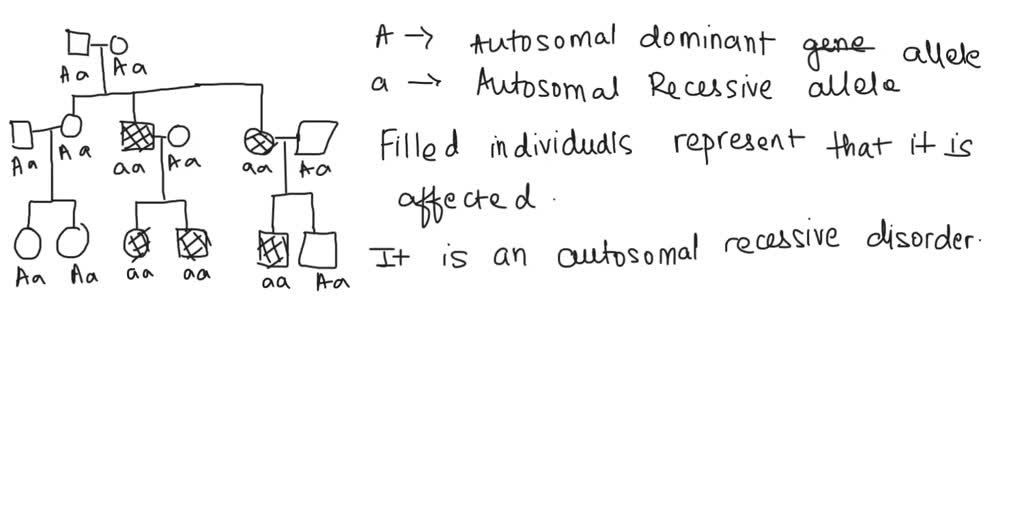 A → Autosomal dominant gene allele
a → Autosomal Recessive allele
Filled individuals represent that it is
affected.
It is an autosomal recessive disorder.
Aa Aa
Aa Aa aa Aa aa Aa
Aa Aa aa aa aa Aa